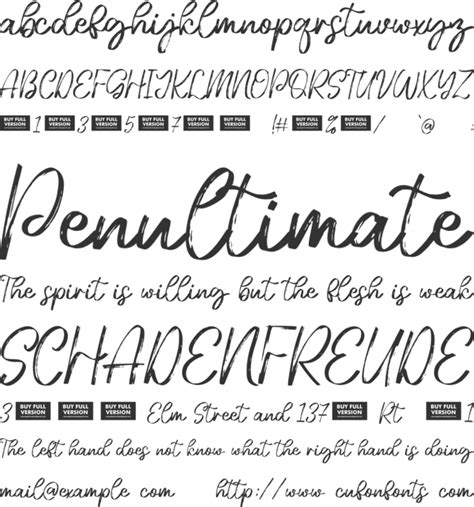 abcdefghijklmnopqrstuvwxyz
ABCDEFGHIJKLMNOPQRSTUVWXYZ
BUY FULL VERSION 1 BUY FULL VERSION 3 BUY FULL VERSION 5 BUY FULL VERSION 7 BUY FULL VERSION BUY FULL VERSION !# BUY FULL VERSION % BUY FULL VERSION / `@ BUY FULL VERSION
Penultimate
The spirit is willing but the flesh is weak
SCHADENFREUDE
3 BUY FULL VERSION BUY FULL VERSION Elm Street and 137 BUY FULL VERSION Rt BUY FULL VERSION 1
The left hand does not know what the right hand is doing
mail@example com http://www cufonfonts com